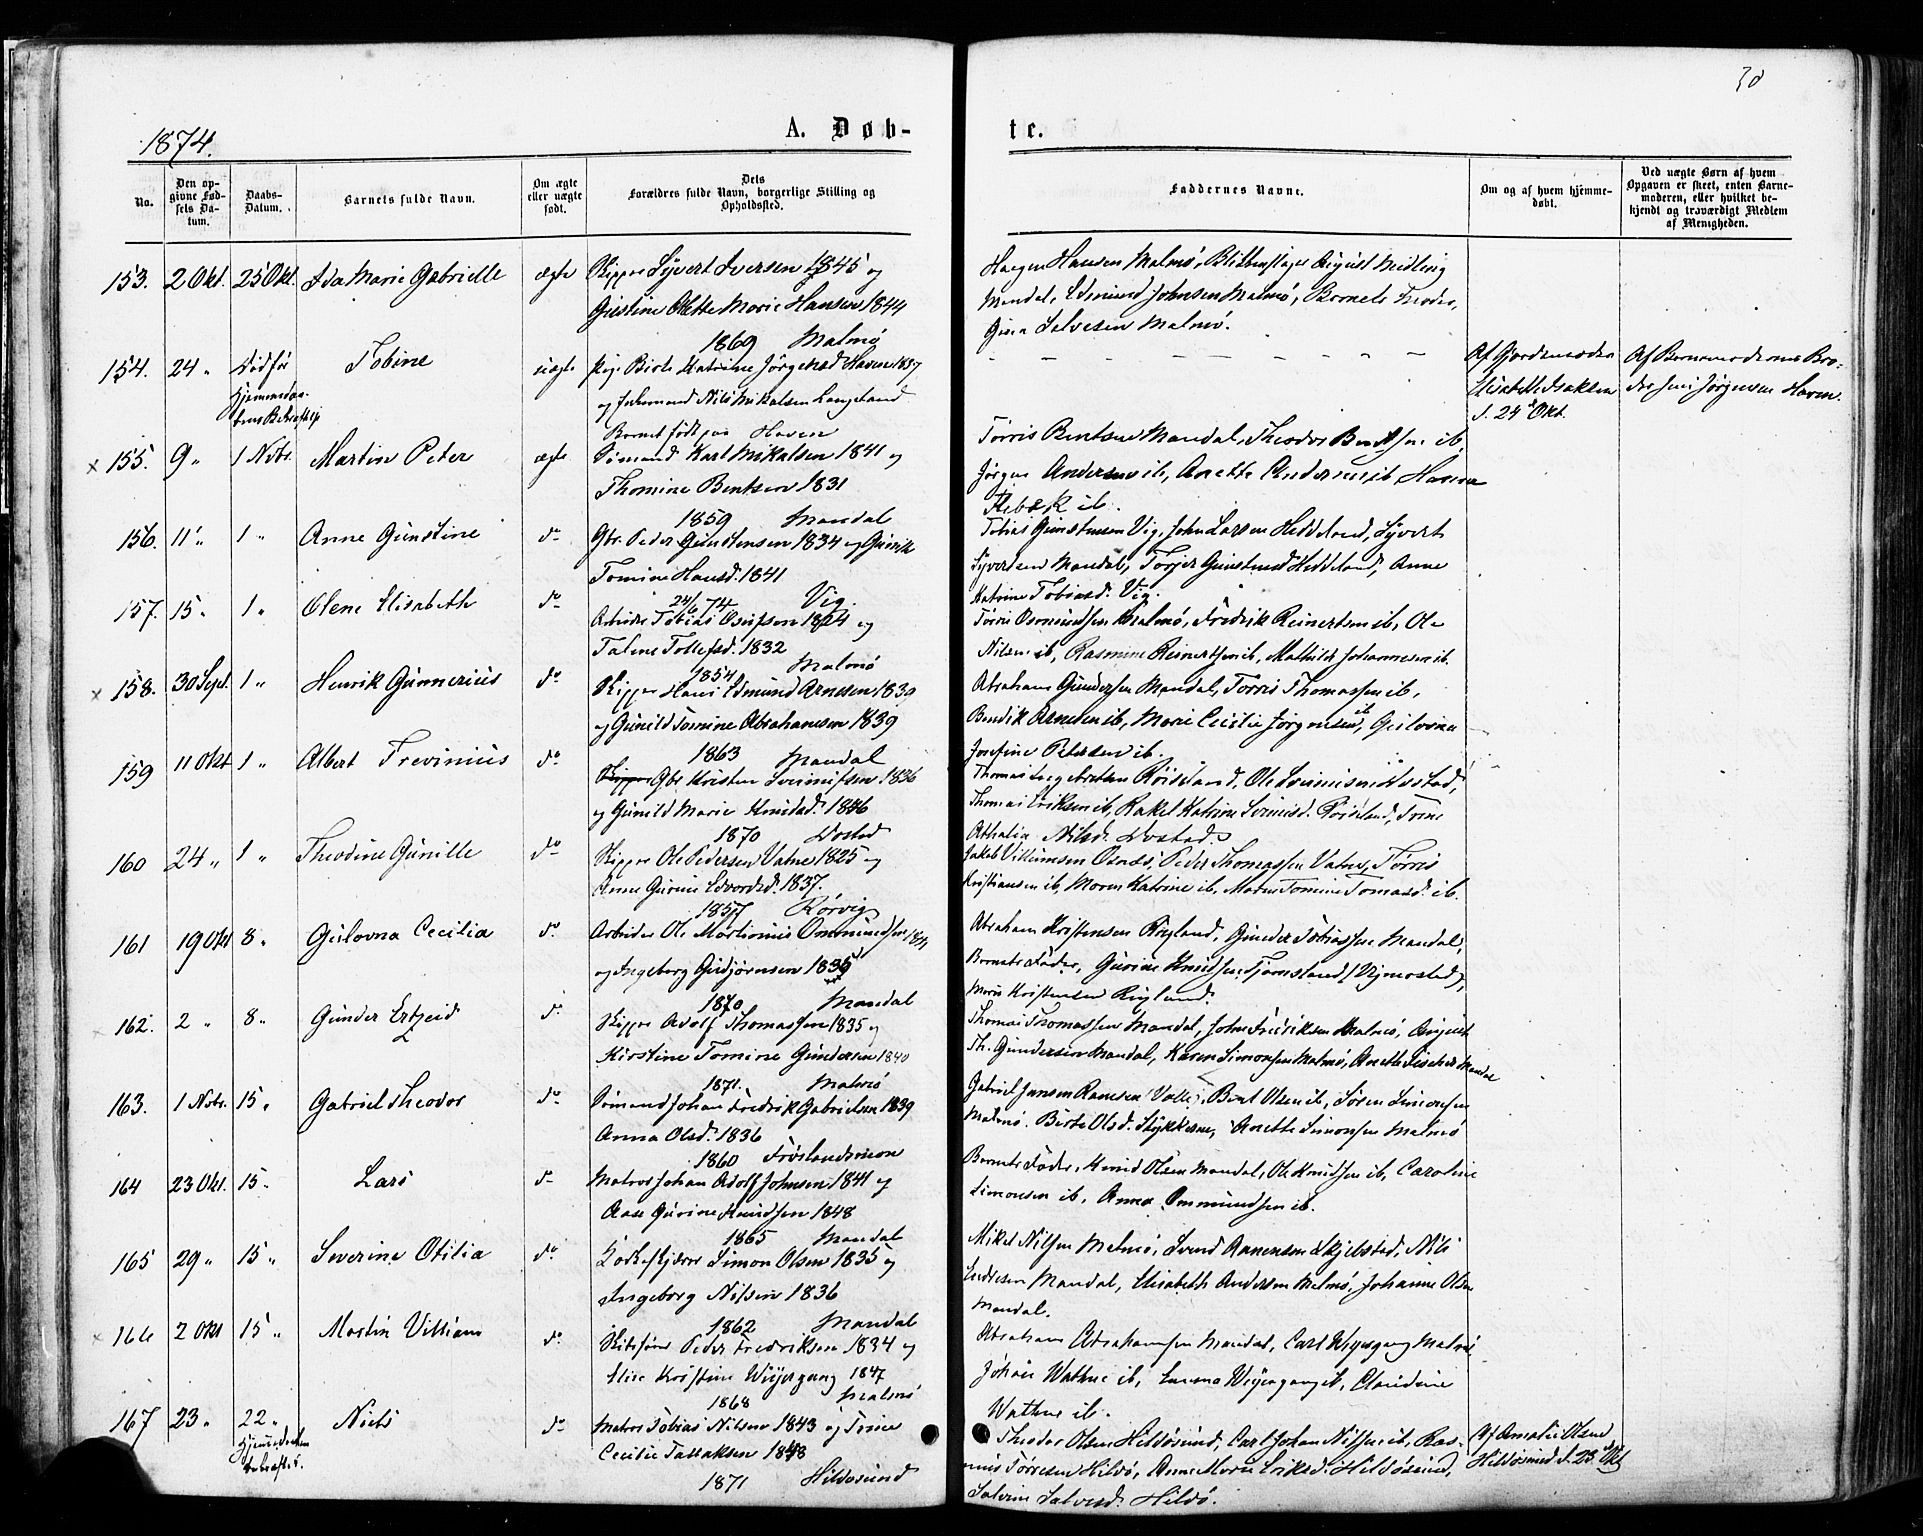 30
1874.
A. Døb-
te.
No.
Den op-
givne Fød-
sels Da-
tum.
Daabs-
Datum.
Barnets fulde Navn.
Om ægte
eller uægte
født.
Dets
Forældres fulde Navn, borgerlige Stilling og
Opholdssted.
Faddernes Navne.
Om og af hvem hjemme-
døbt.
Ved uægte Børn af hvem
Opgaven er skeet, enten Barne-
moderen, eller hvilket be-
kjendt og troværdigt Medlem
af Menigheden.
153. 2 Okt. 25 Okt. Ida Marie Gabrielle ægte Skipper Syvert Iversen 1845 og
Gustine Olette Marie Hansen 1844
1869 Malmø
Hansen Malmø, August
Mandal, Edmund Johnsen Malmø, Barnets Fader,
Gina Salvesen Malmø.
154. 24 " Tobine uægte Pige Birte Katrine Jørgensd. Haven 1837
og Nils Mikalsen Langeland
Barnet født paa Haven
Af Gjordemoder
Elisabeth Isaksen
d. 24 Okt.
Af Barnemoderens Bro-
der Jens Jørgensen Haven.
x 155. 9 " 1 Nvbr. Martin Peter ægte Sømand Karl Mikalsen 1841 og
Thomine Bentsen 1831
1859 Mandal
Tørris Bentsen Mandal, Theodor Bentsen ib.
Jørgen Andersen ib, Anette Andersen ib, Hanna
ib.
156. 11 " 1 " Anne Gunstine do Gbr. Peder Gunstensen 1834 og Gunille
Tomine Hansd. 1841
24/6 74 Vig.
Tobias Gunstensen Vig, John Larsen Heddeland, Syvert
Syvertsen Mandal, Torjer Gunstensen Heddeland, Anne
Katrine Tobiasd. Vig.
157. 15 " 1 " Olene Elisabeth do Arbeider Tobias Osufsen 1824 og
Talene Tollefsd. 1832
1854 Malmø
Tørris Osmundsen Malmø, Fredrik Reinertsen ib, Ole
Nilsen ib, Rasmine Reinertsen ib, Mathilde Johannesen ib.
x 158. 30 Sept. 1 " Henrik Gunnerius do Skipper Hans Edmund Arnesen 1839
og Gunild Tomine Abrahamsen 1839
1863 Mandal
Abraham Gundersen Mandal, Tørris Thomassen ib,
Bendik Arnesen ib, Marie Cecilie Jørgensen ib, Gulovna
Josefine Petersen ib.
159 11 Okt 1 " Albert Trevinius do Gbr. Kristen Svennisen 1836
og Gunild Marie Knudsd. 1846
1870
Thomas Røiseland, Ole Svennisen
Thomas Eriksen ib, Rakel Katrine Svennisd. Røiseland, Trine
Athalia Nilsd.
160 24 " 1 " Theodine Gunille do Skipper Ole Pedersen Vatne 1825 og
Anne Gurine Edvardsd. 1837.
1857 Rørvig
Jakob Villumsen Osnes, Peder Thomassen Vatne, Tørris
Kristiansen ib, Maren Katrine ib, Maren Tomine Tomasd. ib.
161 19 Okt 8 " Gulovna Cecilia do. Arbeider Ole Martinius Ommundsen 1844
og Ingeborg Gudjørnsen 1835
1870 Mandal
Abraham Kristensen Røyland, Gunder Tobiassen Mandal,
Barnets Fader, Gurine Knudsen Tjomsland,
Marie Kristensen Røyland.
162. 2 " 8 " Gunder Ertzeid do Skipper Adolf Thomassen 1835 og
Kirstine Tomine Gundersen 1840
1871. Malmø
Thomas Thomassen Mandal, John Fredriksen Malmø, August
Th. Gundersen Mandal, Karen Simonsen Malmø, Anette Mandal
163. 1 Nvbr. 15 " Gabriel Theodor do Sømand Johan Fredrik Gabrielsen 1839
Anna Olsd. 1836
1860 Frøslandsmoen
Gabriel Jansen Valle, Bent Olsen ib, Søren Simonsen
Malmø. Birte Olsd. Anette Simonsen Malmø
164 23 Okt. 15 " Lars do Matros Johan Adolf Johnsen 1841 og
Aase Gurine Knudsen 1848
1865 Mandal
Barnets Fader, Knud Olsen Mandal, Ole Knudsen ib, Caroline
Simonsen ib, Anna Ommundsen ib.
165 29 " 15 " Severine Otilia do Simon Olsen 1835 og
Ingeborg Nilsen 1836
1862 Mandal
Mikel Nilsen Malmø, Svend Skjebstad, Nils
Mandal, Elisabeth Andersen Malmø, Johanne Olsen
Mandal.
x 166 2 Okt 15 " Martin Villiam do Peder Fredriksen 1834 og
Elise Kristine Weyergang 1847
1868 Malmø
Abraham Abrahamsen Mandal, Carl Weyergang Malmø
Johan Wathne ib, Emma Weyergang ib, Claudine
Wathne ib.
167 23 " 22 " Niels do Matros Tobias Nilsen 1843 og Trine
Cecilie Tallaksen 1848
1871 Hildøsund
Theodor Olsen Hildøsund, Carl Johan Nilsen ib, Ras-
mus Tørresen Hildø, Anne Marie Eriksd. Hildøsund,
Salvesd. Hildø.
Af Amalie Olsen
Hildøsund d. 23 Okt